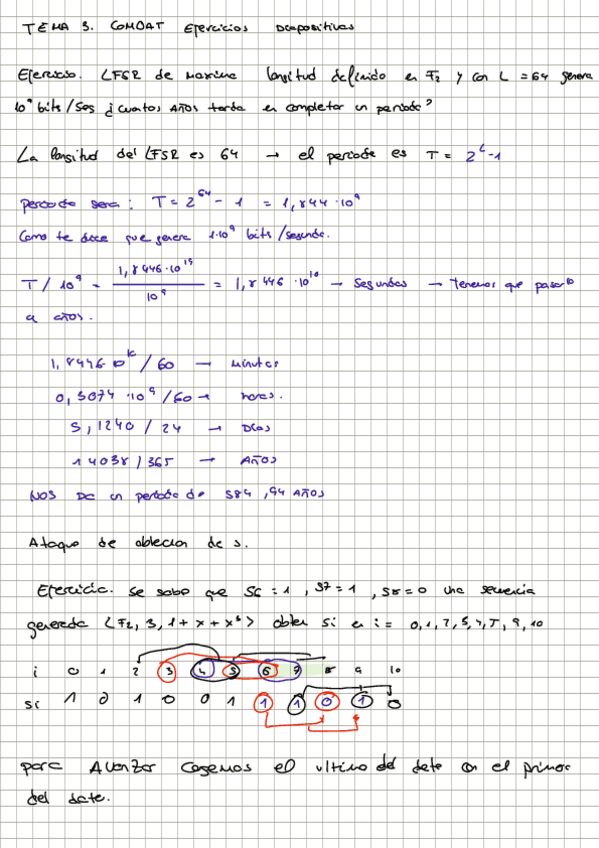 TEMA 3. COMDAT Ejercicios Diapositivas
Ejercicio. LFSR de maxima longitud definido en F2 y con L = 64 genera
10⁹ bits/seg ¿cuantos Años tarda en completar un periodo?
La longitud del LFSR es 64 → el periodo es T = 2^L-1
periodo sera: T = 2^64 - 1 = 1,844 · 10⁹
Como te dice que genera 1·10⁹ bits/segundo.
T / 10⁹ = 1,8446·10^19 / 10⁹ = 1,8446 · 10^10 → segundos → tenemos que pasarlo
a años.
1,8446·10^10 / 60 → minutos
0,3074 · 10⁹ / 60 → horas.
5,1240 / 24 → Dias
14038 / 365 → Años
NOS DA un periodo de 584,94 Años
Ataque de obtencion de s.
Ejercicio. Se sabe que S6 = 1, S7 = 1, S8 = 0 una secuencia
generada <F2, 3, 1 + x + x³> obten si en i = 0, 1, 2, 3, 4, 5, 9, 10
i 0 1 2 3 4 5 6 7 8 9 10
si 1 0 1 0 0 1 1 1 0 1 0
para Avanzar cogemos el ultimo del dato con el primer
del dato.